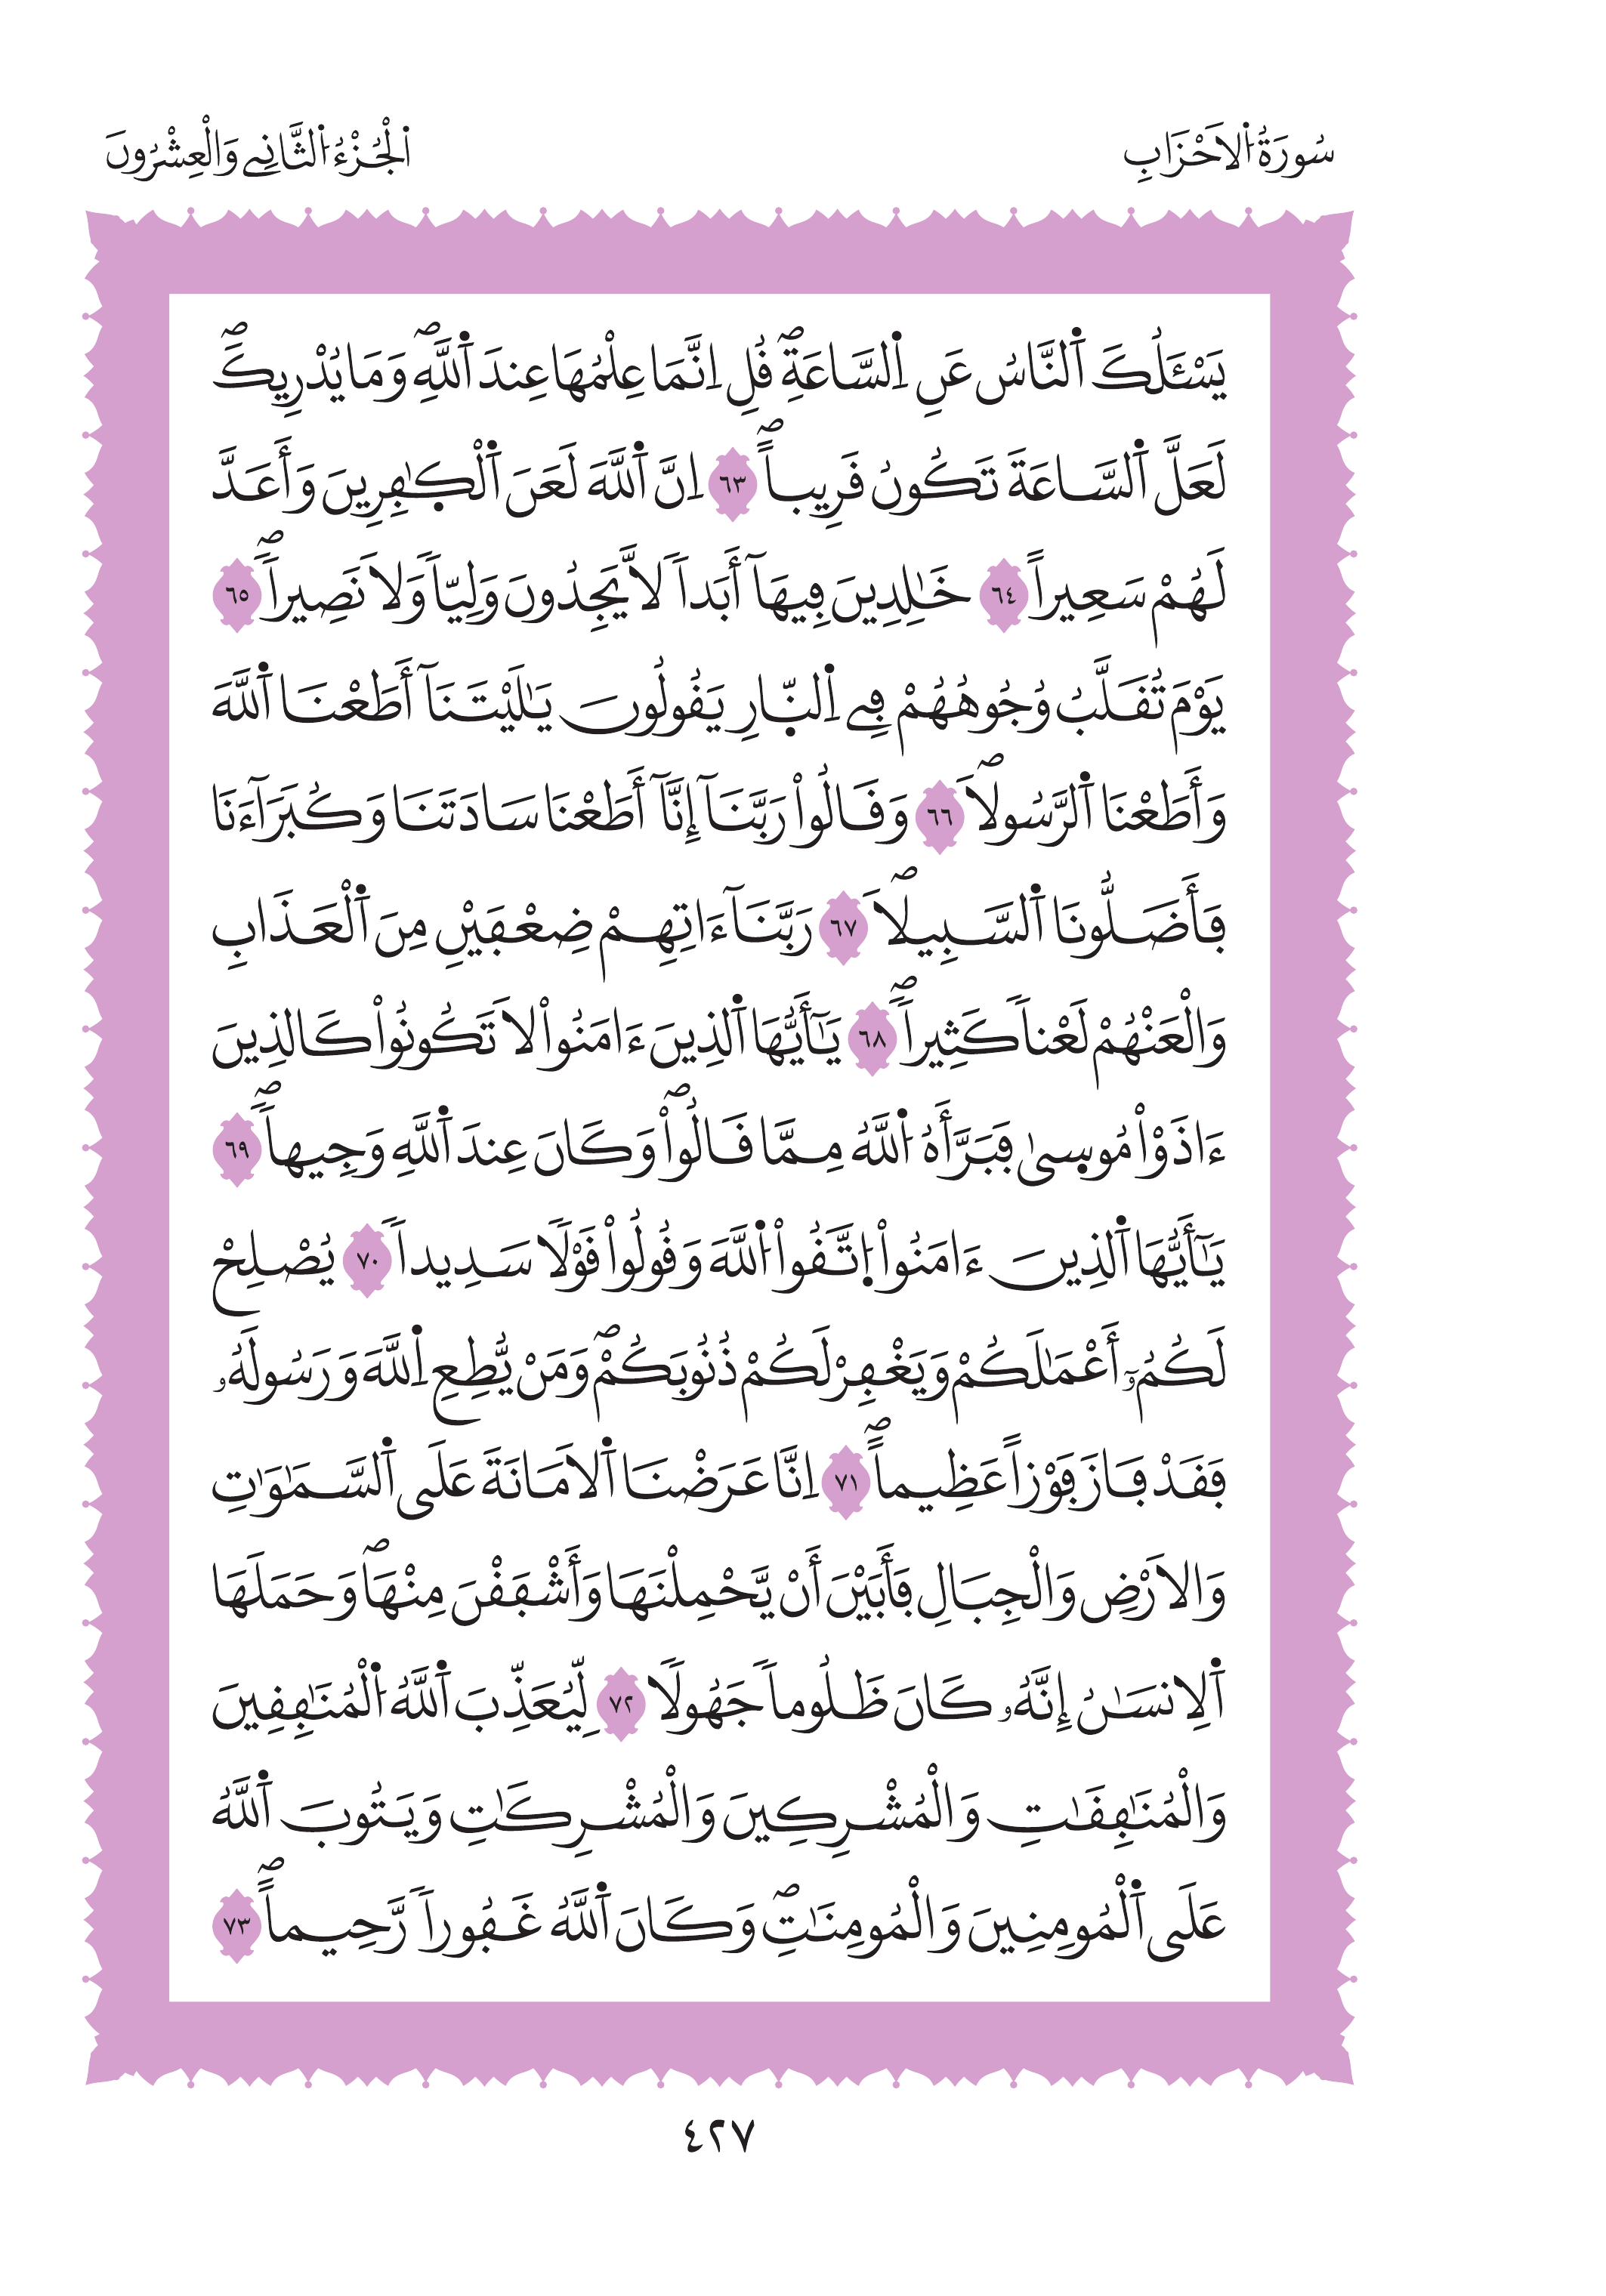 سُورَةُ الاَحْزَابِ
اَلْجُزْءُ الثَّانِے وَالْعِشْرُونَ
يَسْـَٔلُكَ اَ۬لنَّاسُ عَنِ اِ۬لسَّاعَةِۖ قُلِ اِنَّمَا عِلْمُهَا عِندَ اَ۬للَّهِۖ وَمَا يُدْرِيكَۖ
لَعَلَّ اَ۬لسَّاعَةَ تَكُونُ قَرِيباًۖ ٦٣ اِنَّ اَ۬للَّهَ لَعَنَ اَ۬لْكٰ۪فِرِينَ وَأَعَدَّ
لَهُمْ سَعِيراً ٦٤ خَٰلِدِينَ فِيهَآ أَبَداٗ لَّا يَجِدُونَ وَلِيّاٗ وَلَا نَصِيراٗۖ ٦٥
يَوْمَ تُقَلَّبُ وُجُوهُهُمْ فِے اِ۬لنّ۪ارِ يَقُولُونَ يَٰلَيْتَنَآ أَطَعْنَا اَ۬للَّهَ
وَأَطَعْنَا اَ۬لرَّسُولَاۖ ٦٦ وَقَالُواْ رَبَّنَآ إِنَّآ أَطَعْنَا سَادَتَنَا وَكُبَرَآءَنَا
فَأَضَلُّونَا اَ۬لسَّبِيلَاۖ ٦٧ رَبَّنَآ ءَاتِهِمْ ضِعْفَيْنِ مِنَ اَ۬لْعَذَابِ
وَالْعَنْهُمْ لَعْناٗ كَثِيراٗۖ ٦٨ يَٰٓأَيُّهَا اَ۬لذِينَ ءَامَنُواْ لَا تَكُونُواْ كَالذِينَ
ءَاذَوْاْ مُوس۪ىٰ فَبَرَّأَهُ اُ۬للَّهُ مِمَّا قَالُواْۖ وَكَانَ عِندَ اَ۬للَّهِ وَجِيهاٗۖ ٦٩
يَٰٓأَيُّهَا اَ۬لذِينَ ءَامَنُواْ اُ۪تَّقُواْ اُ۬للَّهَ وَقُولُواْ قَوْلٗا سَدِيداٗ ٧٠ يُصْلِحْ
لَكُمُۥٓ أَعْمَٰلَكُمْ وَيَغْفِرْ لَكُمْ ذُنُوبَكُمْۖ وَمَنْ يُّطِعِ اِ۬للَّهَ وَرَسُولَهُۥ
فَقَدْ فَازَ فَوْزاً عَظِيماًۖ ٧١ اِنَّا عَرَضْنَا اَ۬لَامَانَةَ عَلَى اَ۬لسَّمَٰوَٰتِ
وَالَارْضِ وَالْجِبَالِ فَأَبَيْنَ أَنْ يَّحْمِلْنَهَا وَأَشْفَقْنَ مِنْهَاۖ وَحَمَلَهَا
اَ۬لِانسَٰنُ إِنَّهُۥ كَانَ ظَلُوماٗ جَهُولٗا ٧٢ لِّيُعَذِّبَ اَ۬للَّهُ اُ۬لْمُنَٰفِقِينَ
وَالْمُنَٰفِقَٰتِ وَالْمُشْرِكِينَ وَالْمُشْرِكَٰتِ وَيَتُوبَ اَ۬للَّهُ
عَلَى اَ۬لْمُومِنِينَ وَالْمُومِنَٰتِۖ وَكَانَ اَ۬للَّهُ غَفُوراٗ رَّحِيماًۖ ٧٣
٤٢٧